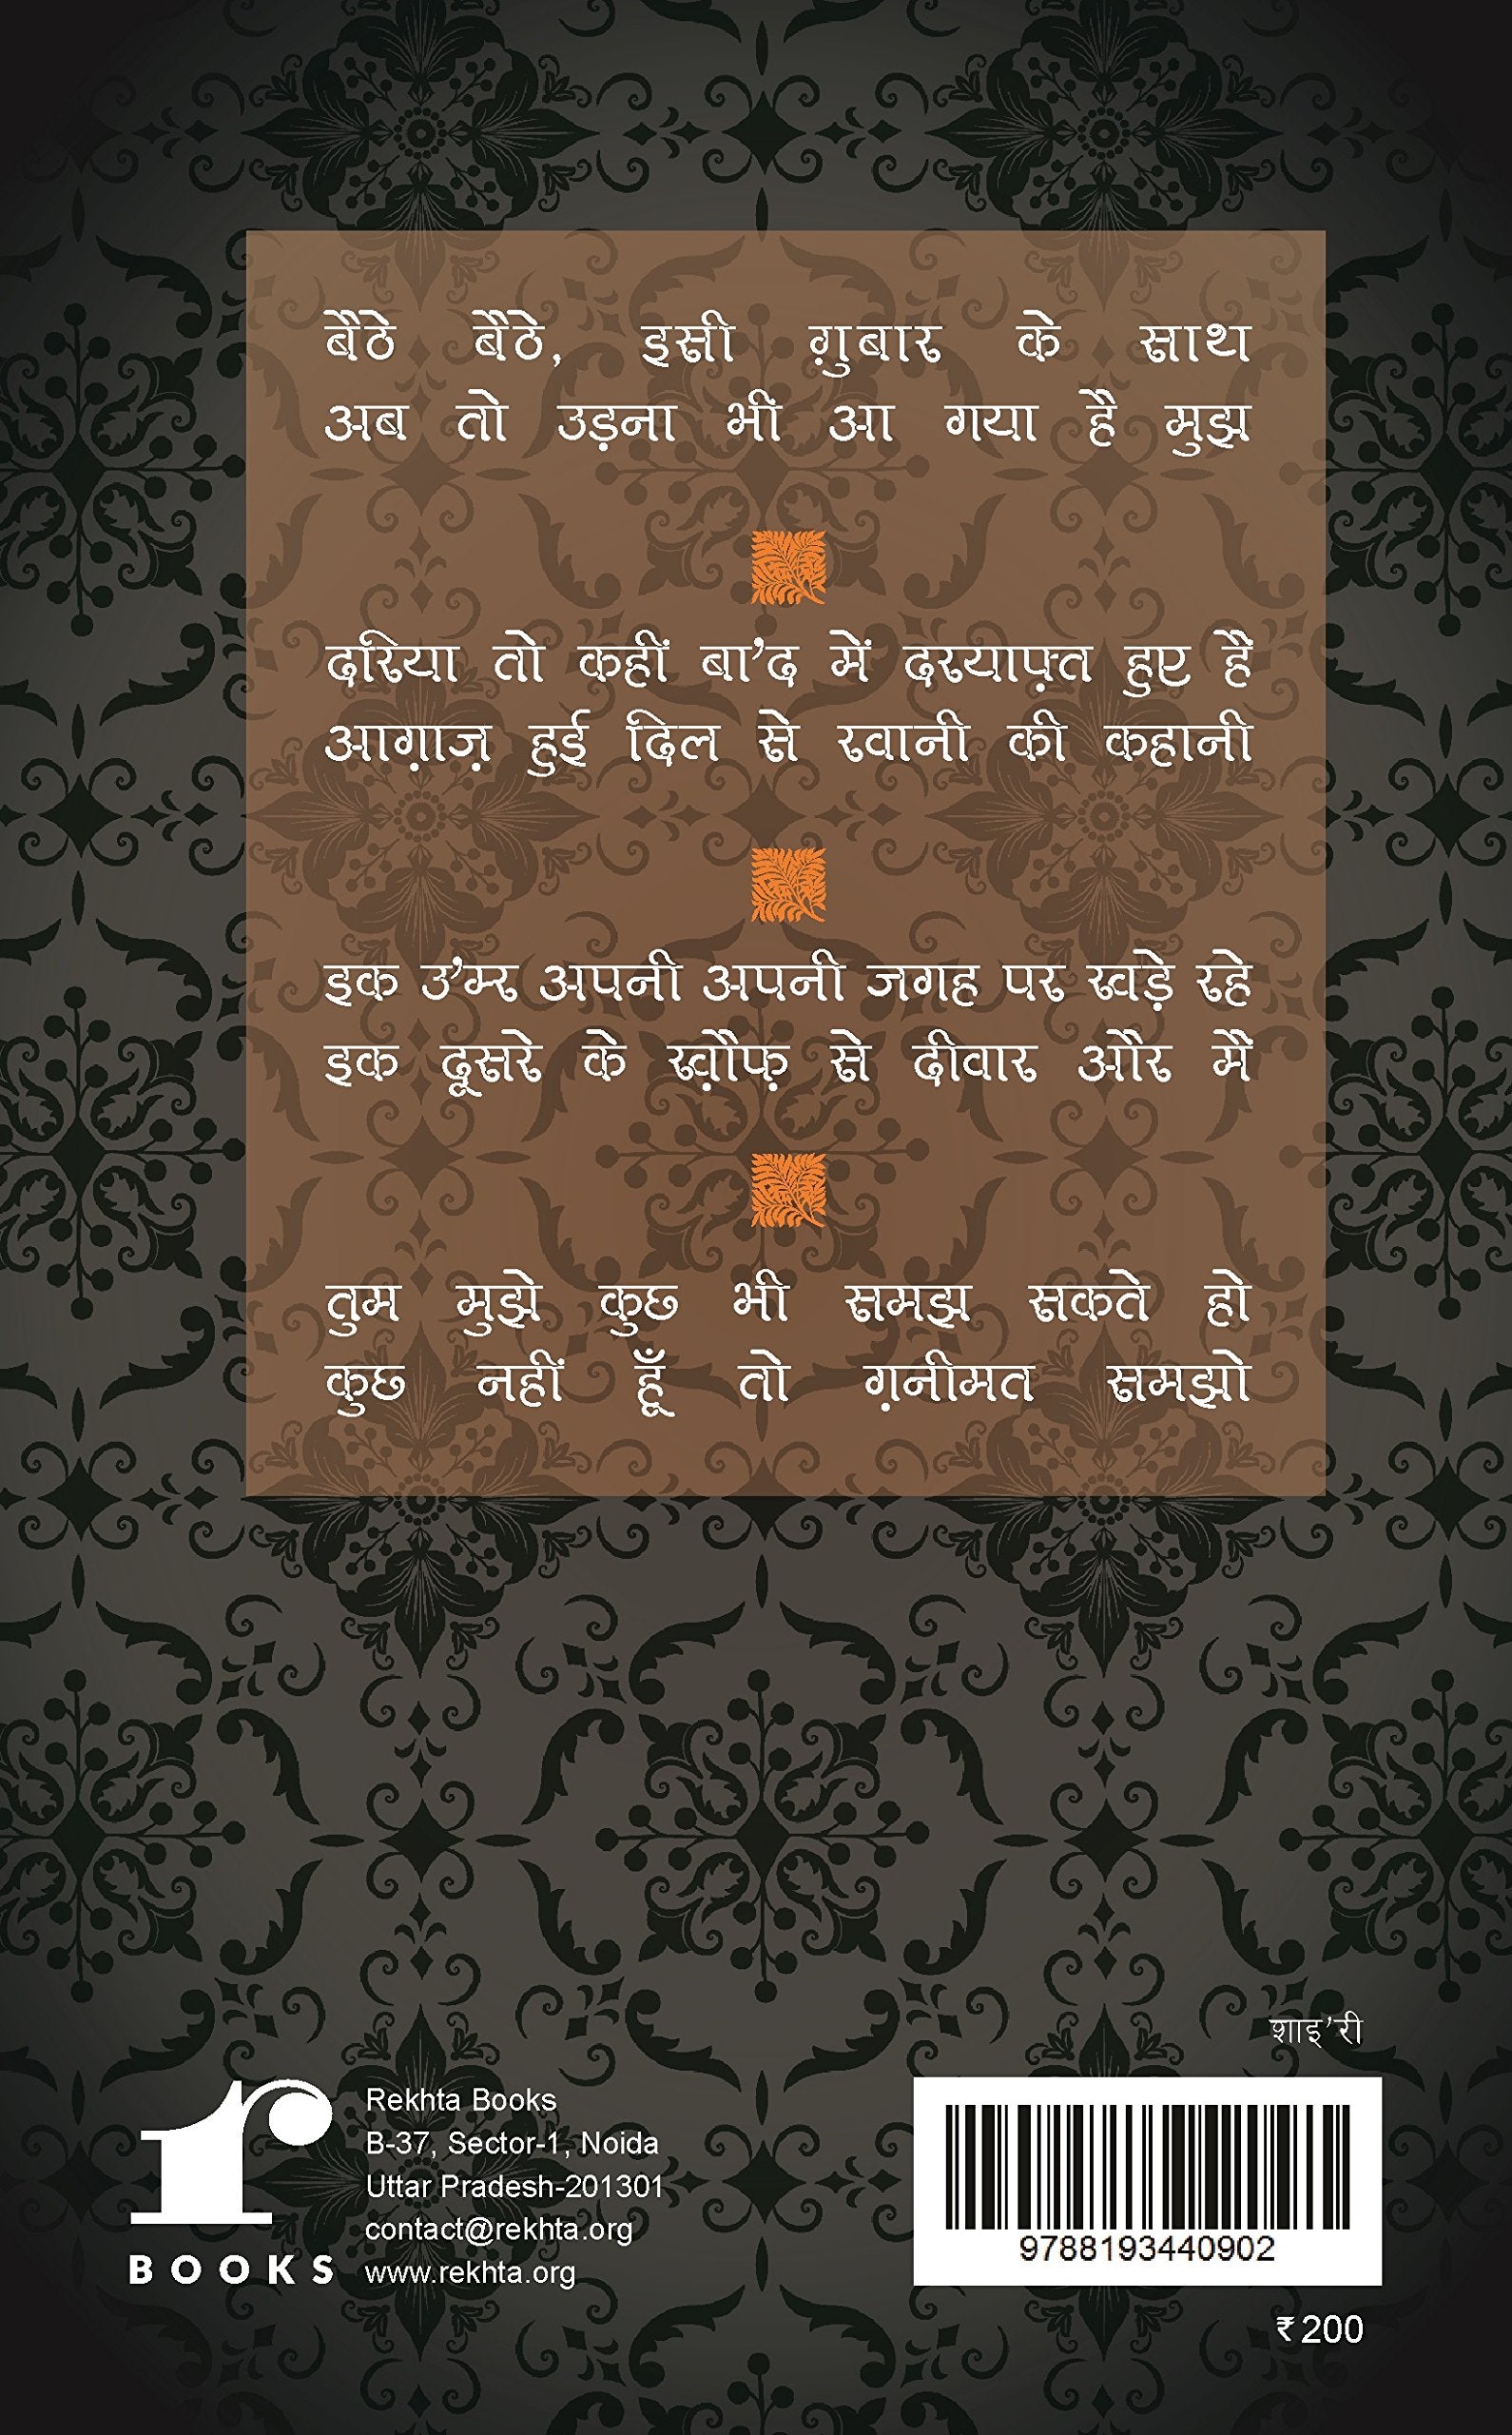 बैठे बैठे, इसी ग़ुबार के साथ
अब तो उड़ना भी आ गया है मुझ
दरिया तो कहीं बा’द में दरयाफ़्त हुए हैं
आग़ाज़ हुई दिल से रवानी की कहानी
इक उ’म्र अपनी अपनी जगह पर खड़े रहे
इक दूसरे के ख़ौफ़ से दीवार और मैं
तुम मुझे कुछ भी समझ सकते हो
कुछ नहीं हूँ तो ग़नीमत समझो
शाइ’री
r
BOOKS
Rekhta Books
B-37, Sector-1, Noida
Uttar Pradesh-201301
contact@rekhta.org
www.rekhta.org
9788193440902
₹ 200